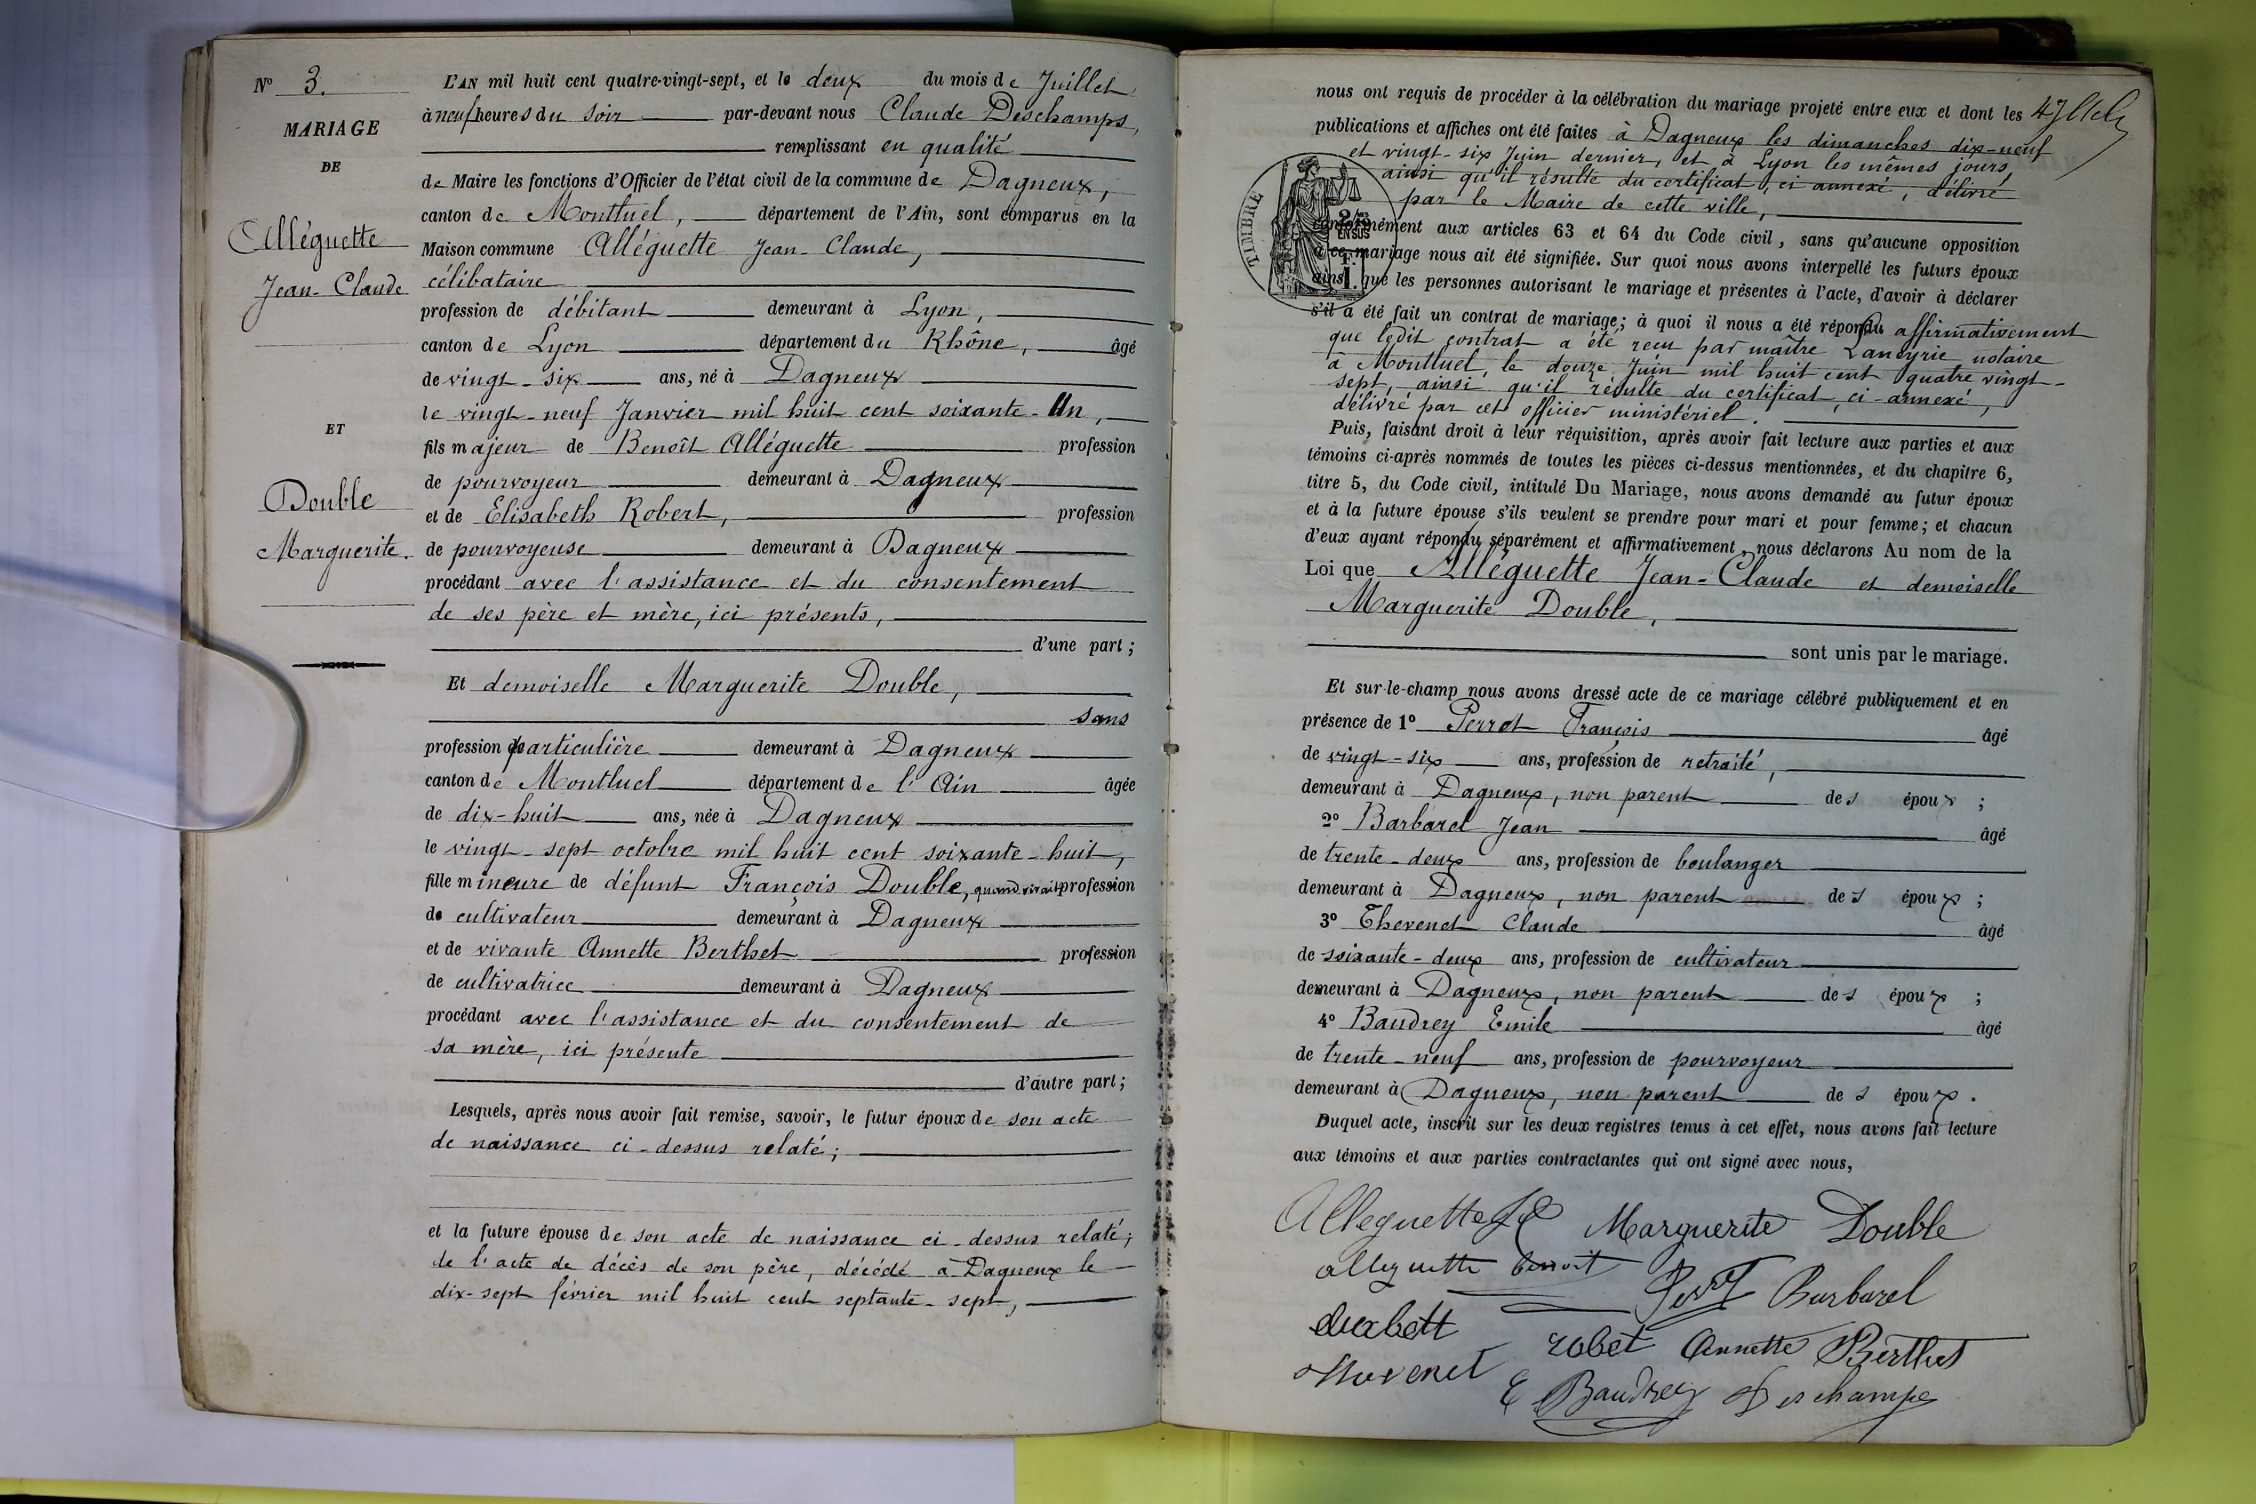 N° 3.
MARIAGE
DE
Alléguette
Jean-Claude
ET
Double
Marguerite.
L'AN mil huit cent quatre-vingt-sept, et le deux du mois de Juillet
à neuf heures du soir par-devant nous Claude Deschamps,
remplissant en qualité
de Maire les fonctions d'Officier de l'état civil de la commune de Dagneux,
canton de Montluel, département de l'Ain, sont comparus en la
Maison commune Alléguette Jean-Claude,
célibataire
profession de débitant demeurant à Lyon,
canton de Lyon département du Rhône, âgé
de vingt-six ans, né à Dagneux
le vingt-neuf Janvier mil huit cent soixante-Un,
fils majeur de Benoît Alléguette profession
de pourvoyeur demeurant à Dagneux
et de Elisabeth Robert, profession
de pourvoyeuse demeurant à Dagneux
procédant avec l'assistance et du consentement
de ses père et mère, ici présents,
d'une part ;
Et demoiselle Marguerite Double,
sans
profession particulière demeurant à Dagneux
canton de Montluel département de l'Ain âgée
de dix-huit ans, née à Dagneux
le vingt-sept octobre mil huit cent soixante-huit,
fille mineure de défunt François Double, quand vivait profession
de cultivateur demeurant à Dagneux
et de vivante Annette Berthet profession
de cultivatrice demeurant à Dagneux
procédant avec l'assistance et du consentement de
sa mère, ici présente
d'autre part ;
Lesquels, après nous avoir fait remise, savoir, le futur époux de son acte
de naissance ci-dessus relaté ;
et la future épouse de son acte de naissance ci-dessus relaté ;
de l'acte de décès de son père, décédé à Dagneux le
dix-sept février mil huit cent septante-sept,
nous ont requis de procéder à la célébration du mariage projeté entre eux et dont les
publications et affiches ont été faites à Dagneux les dimanches dix-neuf
et vingt-six Juin dernier, et à Lyon les mêmes jours,
ainsi qu'il résulte du certificat, ci annexé, délivré
par le Maire de cette ville,
TIMBRE
2/10 EN SUS
conformément aux articles 63 et 64 du Code civil, sans qu'aucune opposition
à ce mariage nous ait été signifiée. Sur quoi nous avons interpellé les futurs époux
ainsi que les personnes autorisant le mariage et présentes à l'acte, d'avoir à déclarer
s'il a été fait un contrat de mariage ; à quoi il nous a été répondu affirmativement
que ledit contrat a été reçu par maître Laneyrie notaire
à Montluel, le douze Juin mil huit cent quatre vingt-
sept, ainsi qu'il résulte du certificat, ci-annexé,
délivré par cet officier ministériel.
Puis, faisant droit à leur réquisition, après avoir fait lecture aux parties et aux
témoins ci-après nommés de toutes les pièces ci-dessus mentionnées, et du chapitre 6,
titre 5, du Code civil, intitulé Du Mariage, nous avons demandé au futur époux
et à la future épouse s'ils veulent se prendre pour mari et pour femme ; et chacun
d'eux ayant répondu séparément et affirmativement, nous déclarons Au nom de la
Loi que Alléguette Jean-Claude et demoiselle
Marguerite Double,
sont unis par le mariage.
Et sur-le-champ nous avons dressé acte de ce mariage célébré publiquement et en
présence de 1° Perret François âgé
de vingt-six ans, profession de retraité,
demeurant à Dagneux, non parent des époux ;
2° Barbarel Jean âgé
de trente-deux ans, profession de boulanger
demeurant à Dagneux, non parent des époux ;
3° Thevenet Claude âgé
de soixante-deux ans, profession de cultivateur
demeurant à Dagneux, non parent des époux ;
4° Baudrey Emile âgé
de trente-neuf ans, profession de pourvoyeur
demeurant à Dagneux, non parent des époux.
Duquel acte, inscrit sur les deux registres tenus à cet effet, nous avons fait lecture
aux témoins et aux parties contractantes qui ont signé avec nous,
Alleguette JC Marguerite Double
alleguette benoit
Perret Barbarel
robet Annette Berthet
thevenet
E Baudrey Deschamps